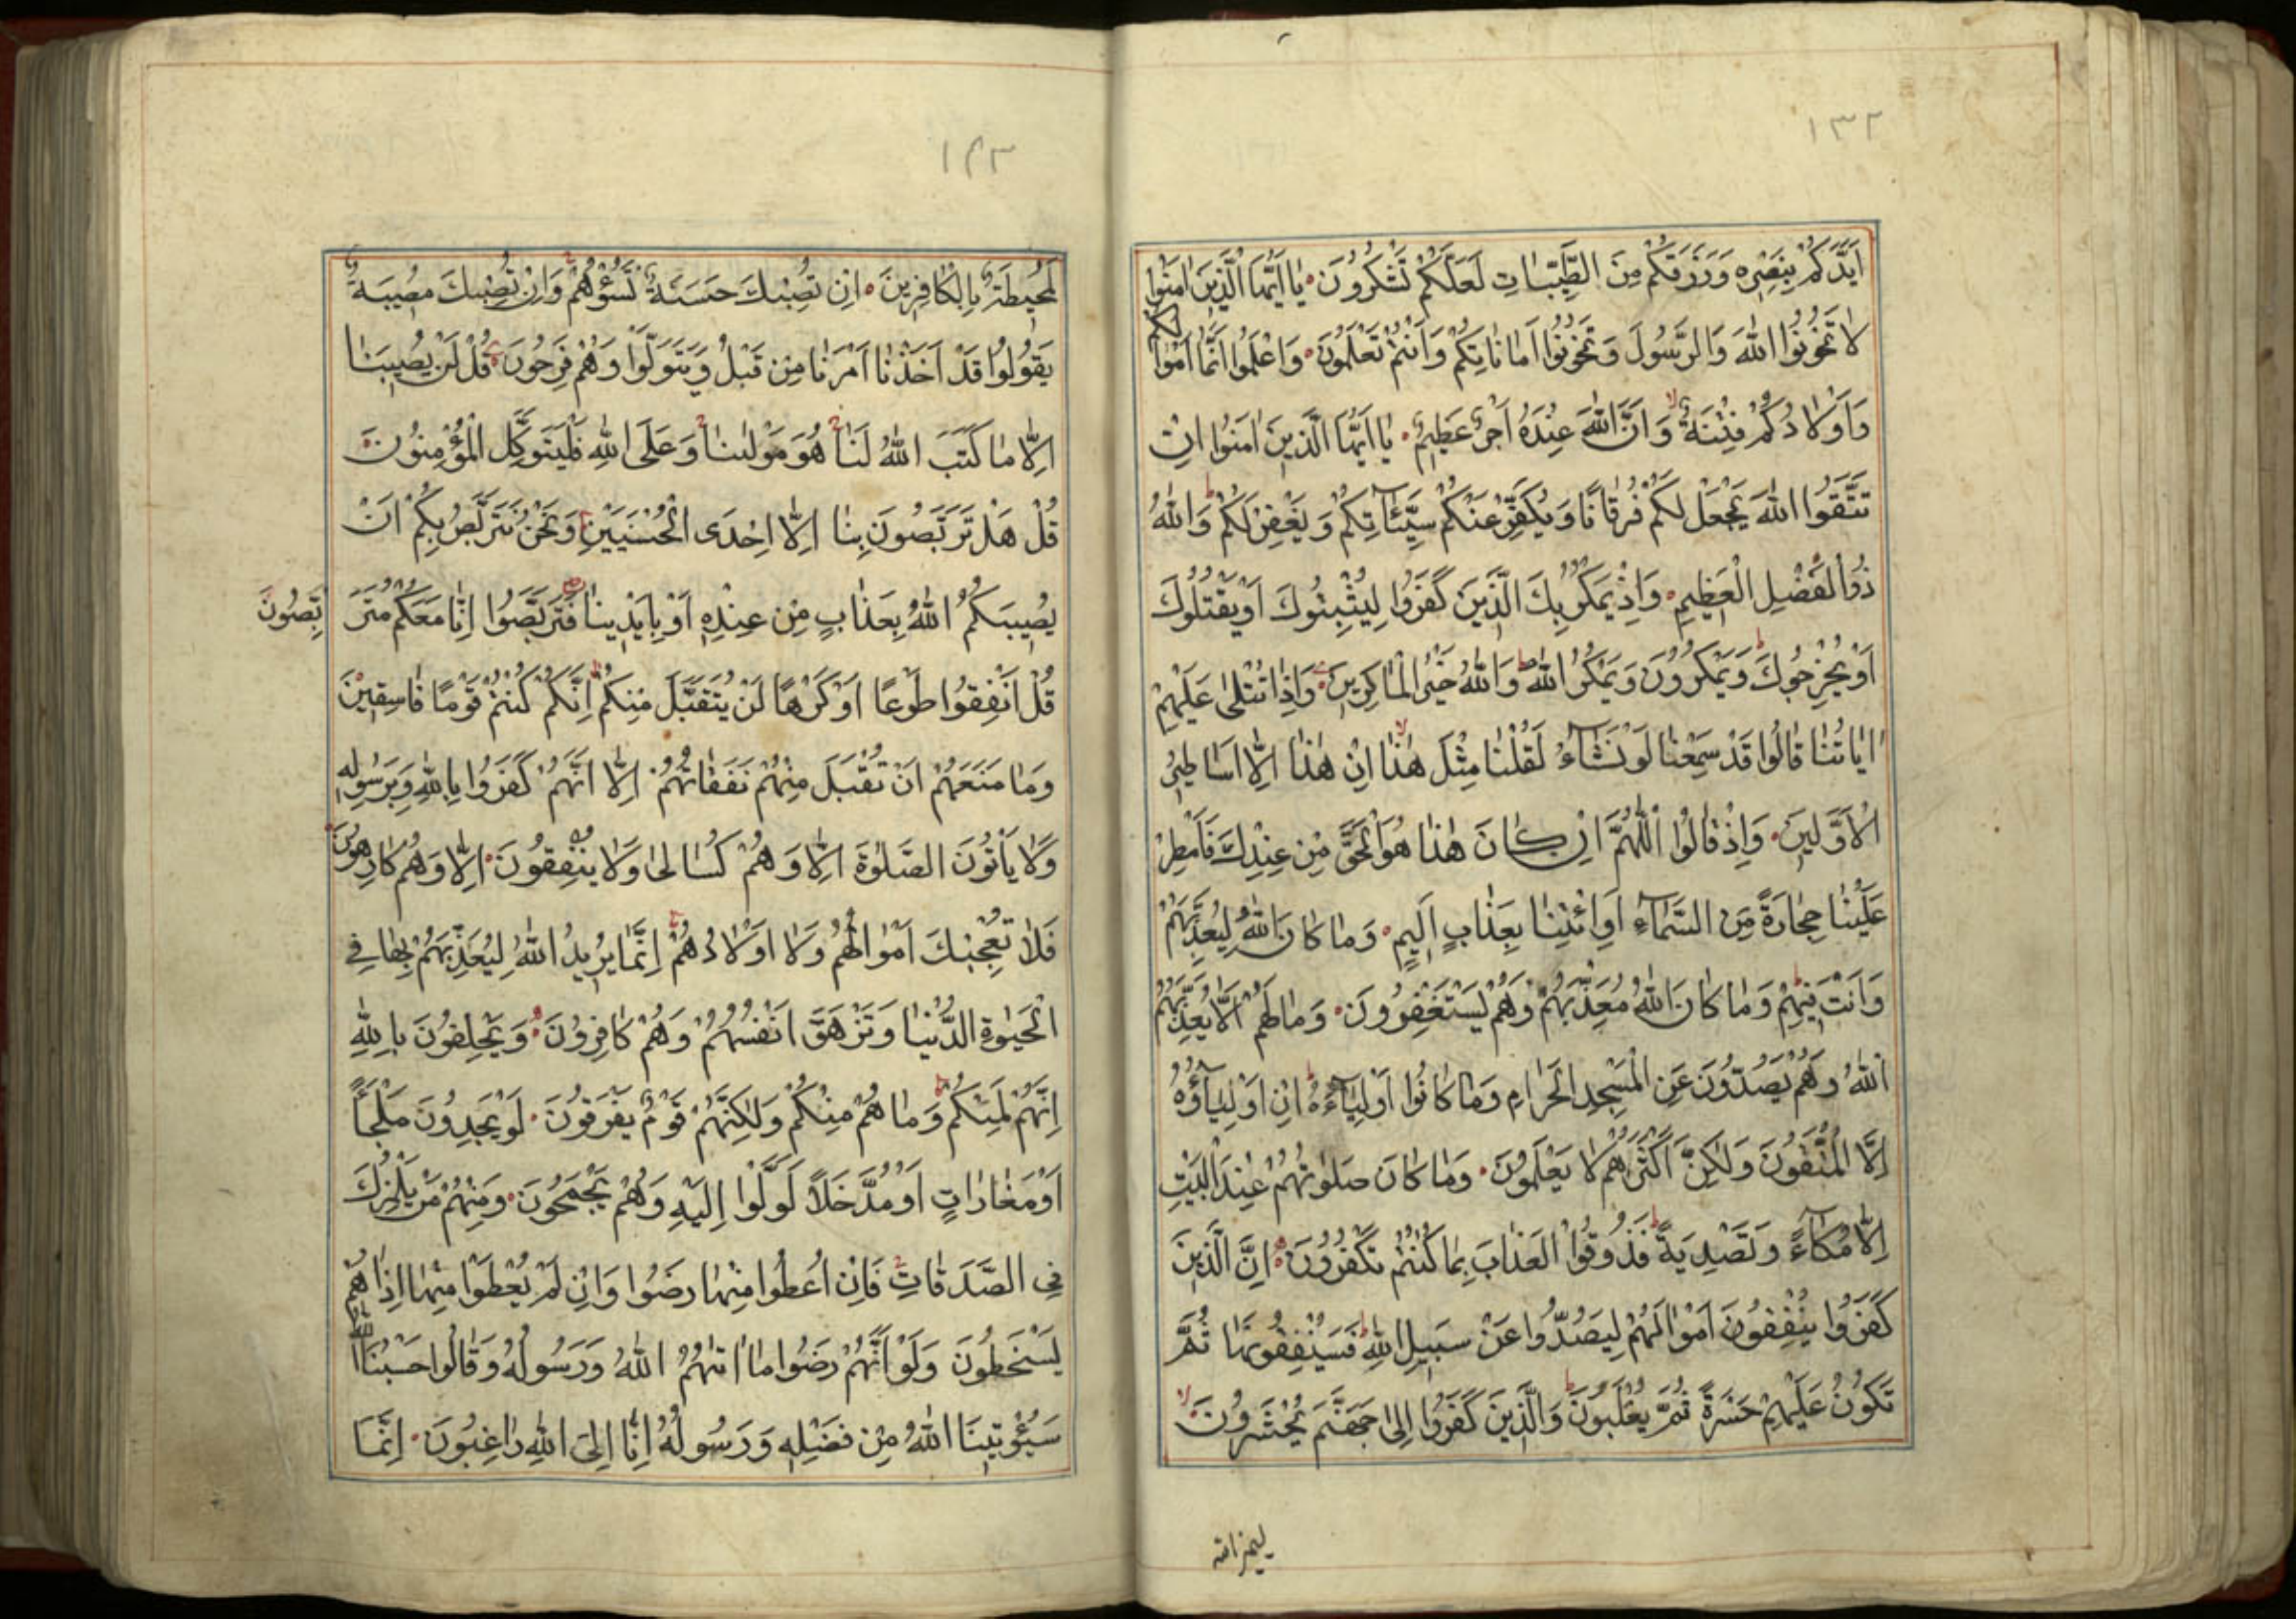 ١٣٢
اَيَّدَكُمْ بِنَصْرِه وَرَزَقَكُمْ مِنَ الطَّيِّبَاتِ لَعَلَّكُمْ تَشْكُرُونَ يَا اَيُّهَا الَّذِينَ اٰمَنُوا
لَا تَخُونُوا اللّٰهَ وَالرَّسُولَ وَتَخُونُوا اَمَانَاتِكُمْ وَاَنْتُمْ تَعْلَمُونَ وَاعْلَمُوا اَنَّمَا اَمْوَالُكُمْ
وَاَوْلَادُكُمْ فِتْنَةٌ وَاَنَّ اللّٰهَ عِنْدَهُ اَجْرٌ عَظِيمٌ يَا اَيُّهَا الَّذِينَ اٰمَنُوا اِنْ
تَتَّقُوا اللّٰهَ يَجْعَلْ لَكُمْ فُرْقَانًا وَيُكَفِّرْ عَنْكُمْ سَيِّئَاتِكُمْ وَيَغْفِرْ لَكُمْ وَاللّٰهُ
ذُو الْفَضْلِ الْعَظِيمِ وَاِذْ يَمْكُرُ بِكَ الَّذِينَ كَفَرُوا لِيُثْبِتُوكَ اَوْ يَقْتُلُوكَ
اَوْ يُخْرِجُوكَ وَيَمْكُرُونَ وَيَمْكُرُ اللّٰهُ وَاللّٰهُ خَيْرُ الْمَاكِرِينَ وَاِذَا تُتْلٰى عَلَيْهِمْ
اٰيَاتُنَا قَالُوا قَدْ سَمِعْنَا لَوْ نَشَآءُ لَقُلْنَا مِثْلَ هٰذَا اِنْ هٰذَا اِلَّا اَسَاطِيرُ
الْاَوَّلِينَ وَاِذْ قَالُوا اللّٰهُمَّ اِنْ كَانَ هٰذَا هُوَ الْحَقَّ مِنْ عِنْدِكَ فَاَمْطِرْ
عَلَيْنَا حِجَارَةً مِنَ السَّمَآءِ اَوِ ائْتِنَا بِعَذَابٍ اَلِيمٍ وَمَا كَانَ اللّٰهُ لِيُعَذِّبَهُمْ
وَاَنْتَ فِيهِمْ وَمَا كَانَ اللّٰهُ مُعَذِّبَهُمْ وَهُمْ يَسْتَغْفِرُونَ وَمَا لَهُمْ اَلَّا يُعَذِّبَهُمُ
اللّٰهُ وَهُمْ يَصُدُّونَ عَنِ الْمَسْجِدِ الْحَرَامِ وَمَا كَانُوا اَوْلِيَآءَهُ اِنْ اَوْلِيَآؤُهُ
اِلَّا الْمُتَّقُونَ وَلٰكِنَّ اَكْثَرَهُمْ لَا يَعْلَمُونَ وَمَا كَانَ صَلَوتُهُمْ عِنْدَ الْبَيْتِ
اِلَّا مُكَآءً وَتَصْدِيَةً فَذُوقُوا الْعَذَابَ بِمَا كُنْتُمْ تَكْفُرُونَ اِنَّ الَّذِينَ
كَفَرُوا يُنْفِقُونَ اَمْوَالَهُمْ لِيَصُدُّوا عَنْ سَبِيلِ اللّٰهِ فَسَيُنْفِقُونَهَا ثُمَّ
تَكُونُ عَلَيْهِمْ حَسْرَةً ثُمَّ يُغْلَبُونَ وَالَّذِينَ كَفَرُوا اِلٰى جَهَنَّمَ يُحْشَرُونَ
ليميز الله
١٣٣
لَمُحِيطَةٌ بِالْكَافِرِينَ اِنْ تُصِبْكَ حَسَنَةٌ تَسُؤْهُمْ وَاِنْ تُصِبْكَ مُصِيبَةٌ
يَقُولُوا قَدْ اَخَذْنَا اَمْرَنَا مِنْ قَبْلُ وَيَتَوَلَّوْا وَهُمْ فَرِحُونَ قُلْ لَنْ يُصِيبَنَا
اِلَّا مَا كَتَبَ اللّٰهُ لَنَا هُوَ مَوْلٰينَا وَعَلَى اللّٰهِ فَلْيَتَوَكَّلِ الْمُؤْمِنُونَ
قُلْ هَلْ تَرَبَّصُونَ بِنَا اِلَّا اِحْدَى الْحُسْنَيَيْنِ وَنَحْنُ نَتَرَبَّصُ بِكُمْ اَنْ
يُصِيبَكُمُ اللّٰهُ بِعَذَابٍ مِنْ عِنْدِهِ اَوْ بِاَيْدِينَا فَتَرَبَّصُوا اِنَّا مَعَكُمْ مُتَرَ بِّصُونَ
قُلْ اَنْفِقُوا طَوْعًا اَوْ كَرْهًا لَنْ يُتَقَبَّلَ مِنْكُمْ اِنَّكُمْ كُنْتُمْ قَوْمًا فَاسِقِينَ
وَمَا مَنَعَهُمْ اَنْ تُقْبَلَ مِنْهُمْ نَفَقَاتُهُمْ اِلَّا اَنَّهُمْ كَفَرُوا بِاللّٰهِ وَبِرَسُولِهِ
وَلَا يَاْتُونَ الصَّلٰوةَ اِلَّا وَهُمْ كُسَالٰى وَلَا يُنْفِقُونَ اِلَّا وَهُمْ كَارِهُونَ
فَلَا تُعْجِبْكَ اَمْوَالُهُمْ وَلَا اَوْلَادُهُمْ اِنَّمَا يُرِيدُ اللّٰهُ لِيُعَذِّبَهُمْ بِهَا فِي
الْحَيٰوةِ الدُّنْيَا وَتَزْهَقَ اَنْفُسُهُمْ وَهُمْ كَافِرُونَ وَيَحْلِفُونَ بِاللّٰهِ
اِنَّهُمْ لَمِنْكُمْ وَمَا هُمْ مِنْكُمْ وَلٰكِنَّهُمْ قَوْمٌ يَفْرَقُونَ لَوْ يَجِدُونَ مَلْجَاً
اَوْ مَغَارَاتٍ اَوْ مُدَّخَلًا لَوَلَّوْا اِلَيْهِ وَهُمْ يَجْمَحُونَ وَمِنْهُمْ مَنْ يَلْمِزُكَ
فِي الصَّدَقَاتِ فَاِنْ اُعْطُوا مِنْهَا رَضُوا وَاِنْ لَمْ يُعْطَوْا مِنْهَا اِذَا هُمْ
يَسْخَطُونَ وَلَوْ اَنَّهُمْ رَضُوا مَا اٰتٰيهُمُ اللّٰهُ وَرَسُولُهُ وَقَالُوا حَسْبُنَا اللّٰهُ
سَيُؤْتِينَا اللّٰهُ مِنْ فَضْلِهِ وَرَسُولُهُ اِنَّا اِلَى اللّٰهِ رَاغِبُونَ اِنَّمَا